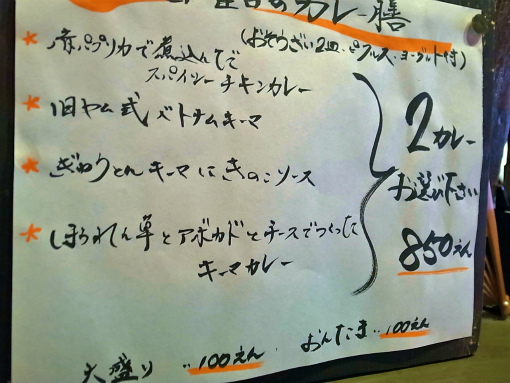 カレー膳
(おそうざい2皿・ピクルス・ヨーグルト付)
* 赤パプリカで煮込んだ
スパイシーチキンカレー
* 旧ヤム式 ベトナムキーマ
* ぎゅうとんキーマにきのこソース
* ほうれん草とアボカドとチーズでつくった
キーマカレー
2カレー
お選び下さい
850えん
大盛り ‥100えん
おんたま‥100えん